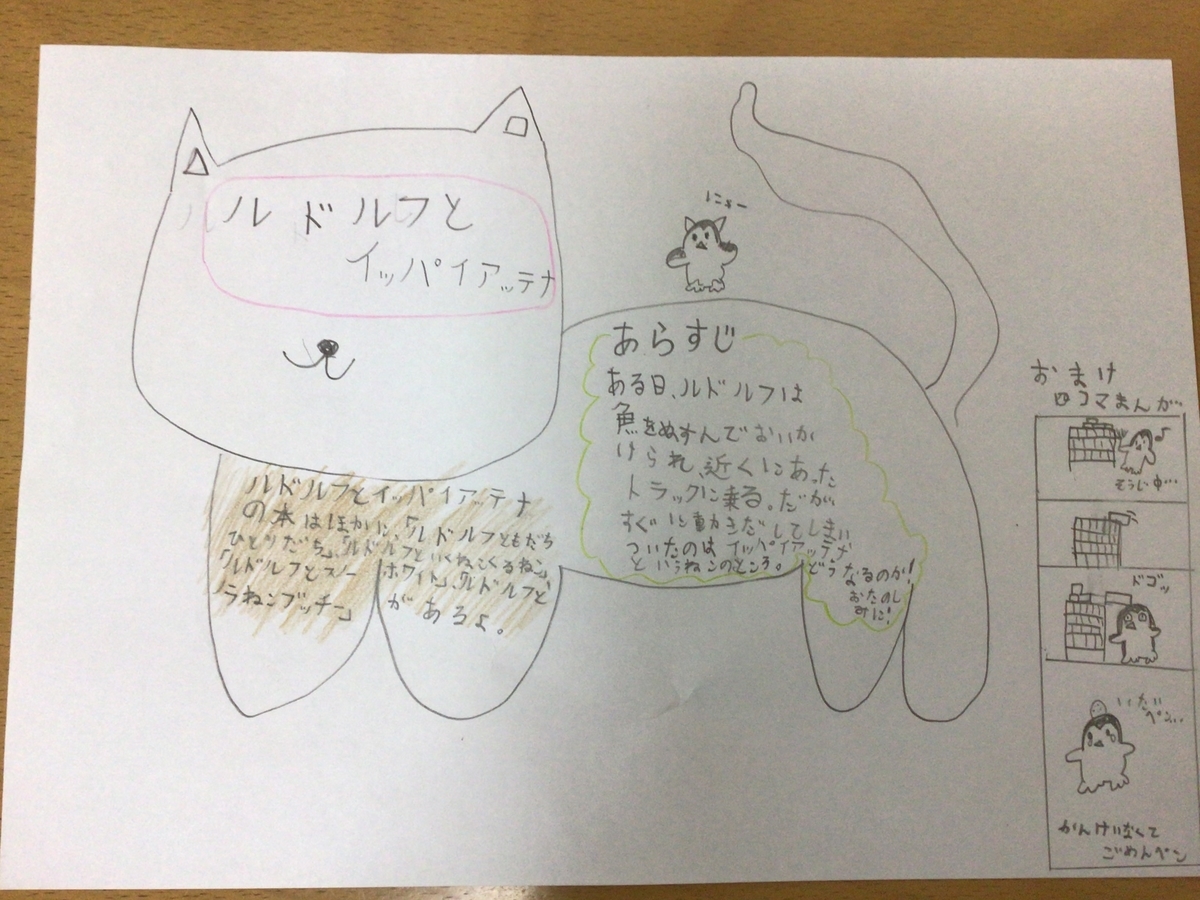 ルドルフと
イッパイアッテナ
にゃー
あらすじ
ある日、ルドルフは
魚をぬすんでおいか
けられ、近くにあった
トラックに乗る。だが
すぐに動きだしてしまい
ついたのはイッパイアッテナ
というねこのところ。どうなるのか!
おたのし
みに!
ルドルフとイッパイアッテナ
の本はほかに、「ルドルフともだち
ひとりだち」、「ルドルフといくねこくるねこ」、
「ルドルフとスノーホワイト」、「ルドルフと
ノラねこブッチー」があるよ。
おまけ
四コマまんが
そうじ中…
ドゴッ
いたい
ペン…
かんけいなくて
ごめんペン